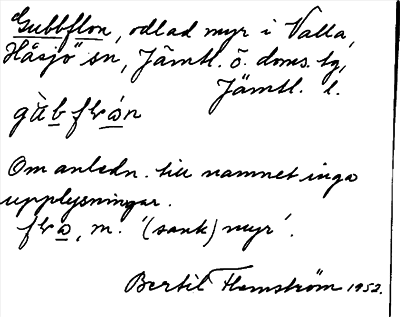 Gubbflon, odlad myr i Valla,
Håsjö sn, Jämtl. ö. doms. tg,
Jämtl. l.
gùbflón
Om anledn. till namnet inga
upplysningar.
flo, m. '(sank) myr'.
Bertil Flemström 1952.